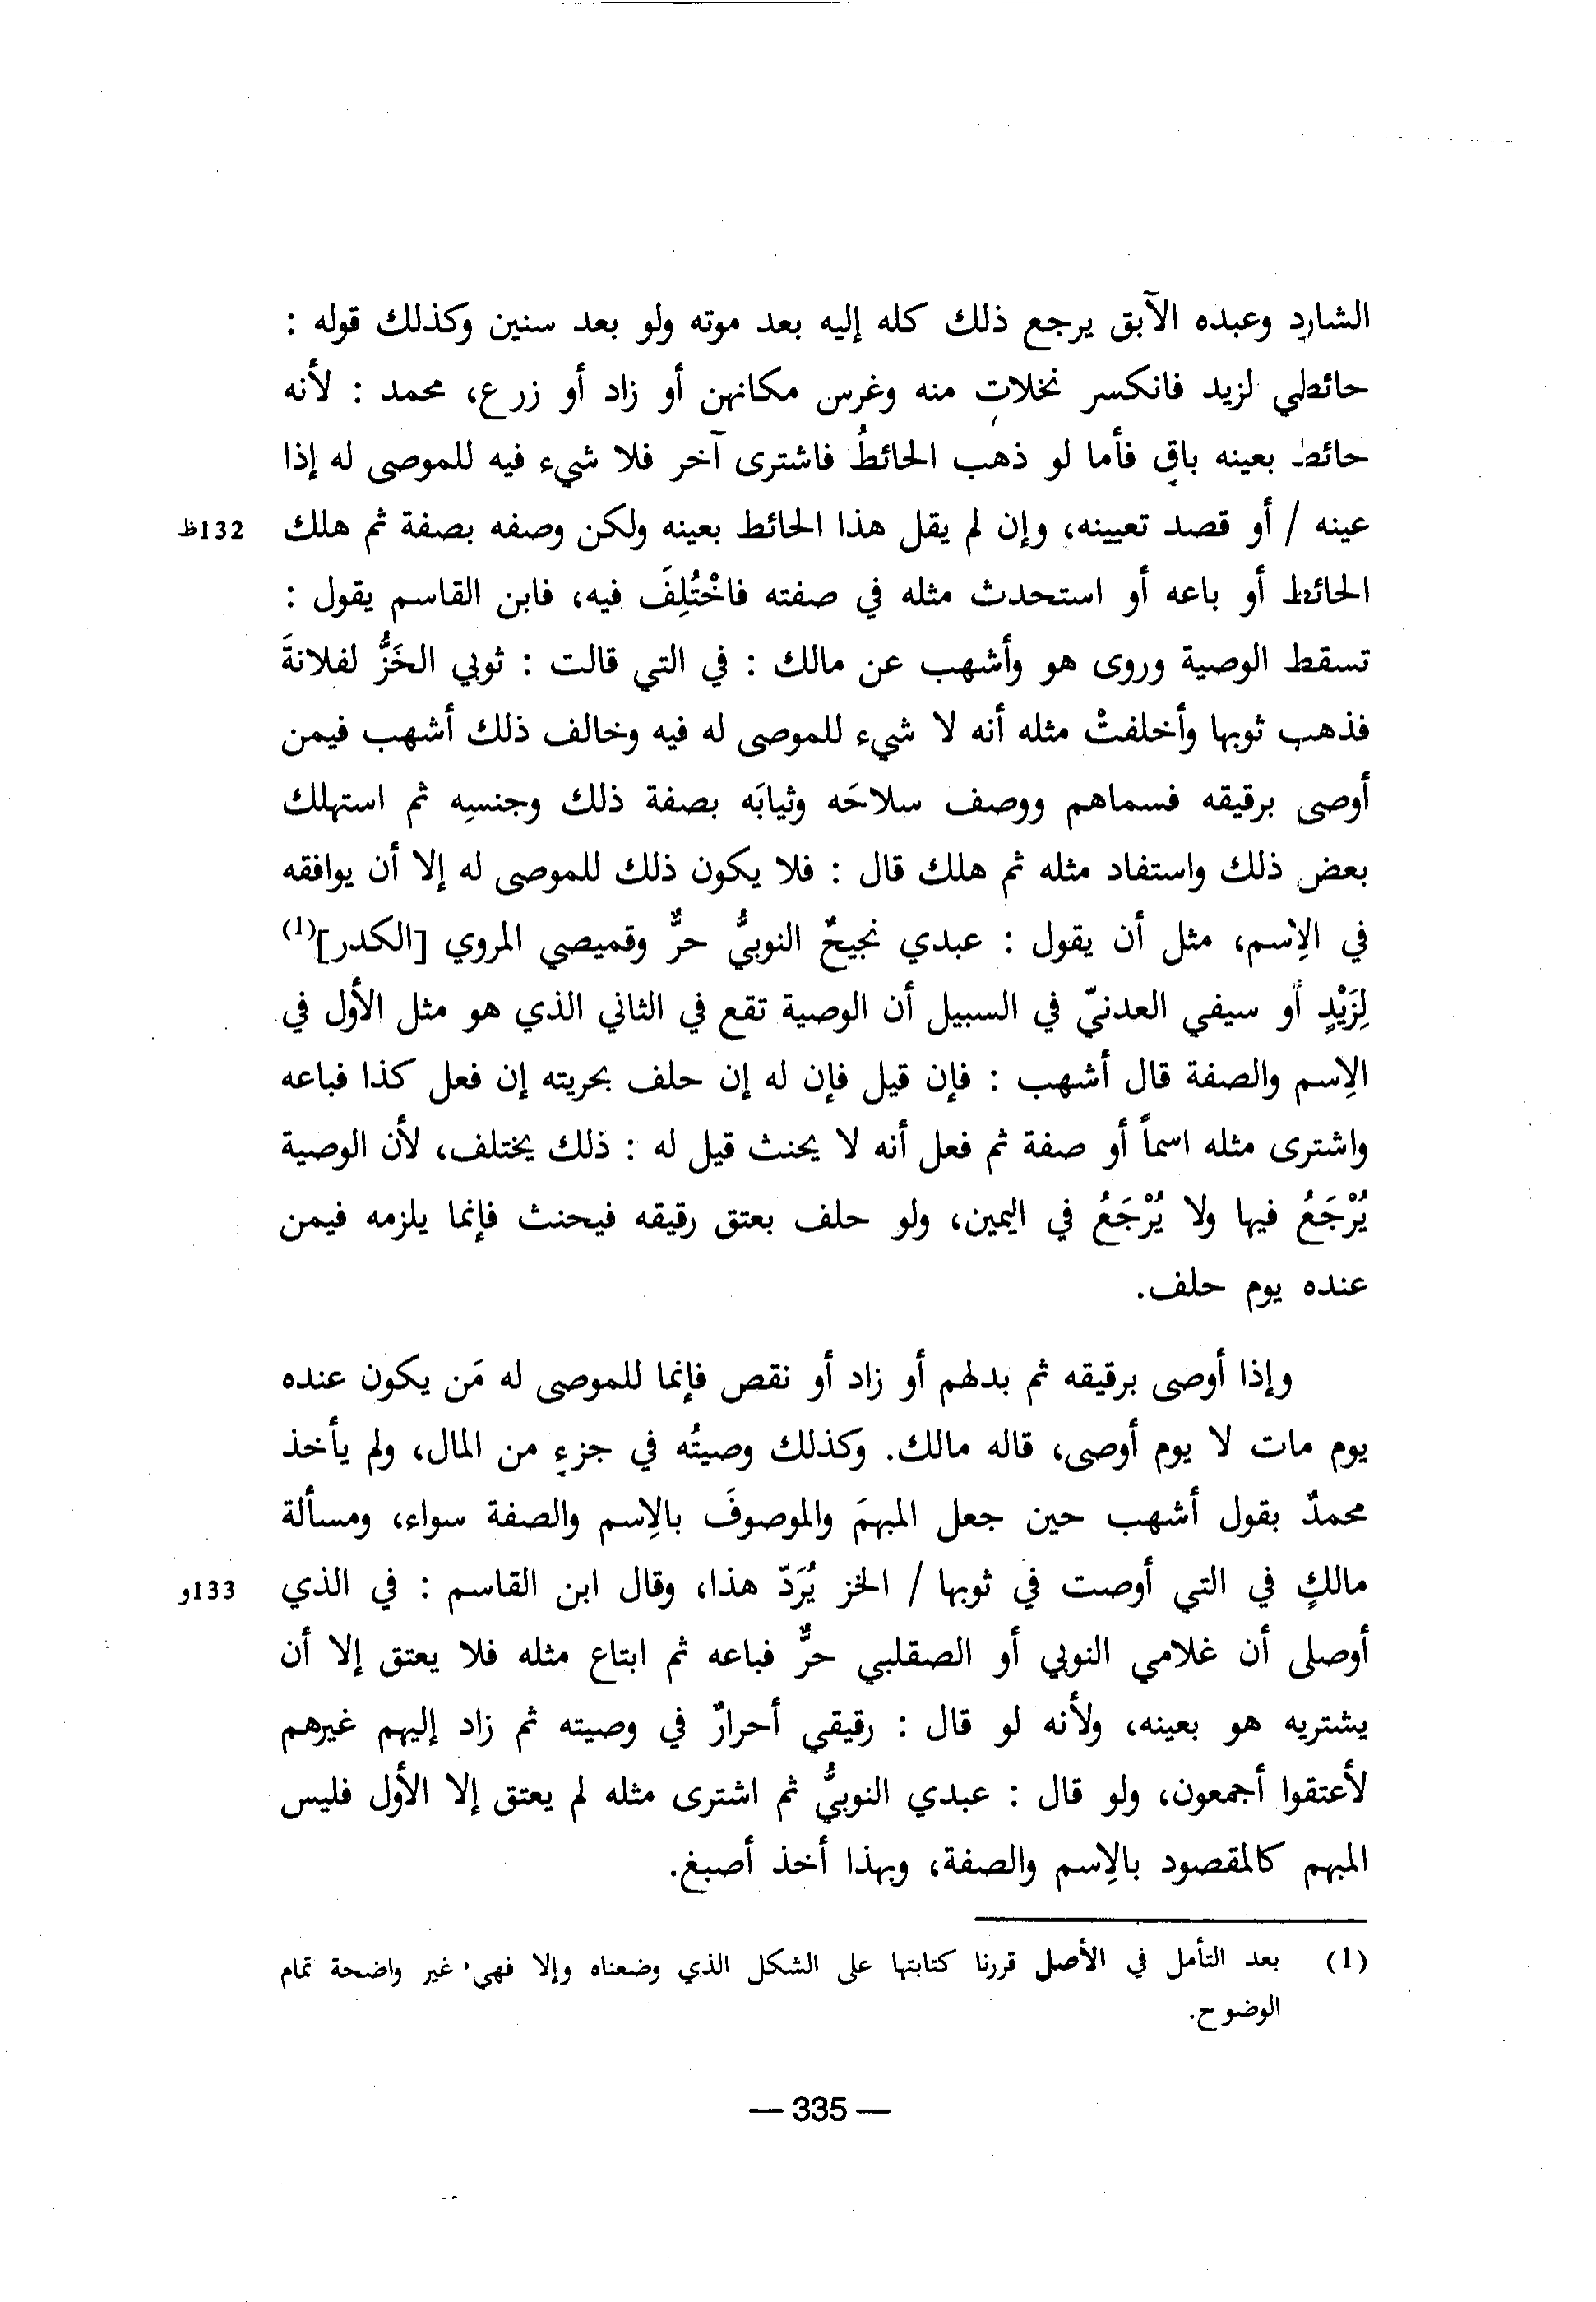 الشارد وعبده الآبق يرجع ذلك كله إليه بعد موته ولو بعد سنين وكذلك قوله :
حائطي لزيد فانكسر نخلات منه وغرس مكانهن أو زاد أو زرع، محمد : لأنه
حائط بعينه باقٍ فأما لو ذهب الحائطُ فاشترى آخر فلا شيء فيه للموصى له إذا
عينه / أو قصد تعيينه، وإن لم يقل هذا الحائط بعينه ولكن وصفه بصفة ثم هلك 132ظ
الحائط أو باعه أو استحدث مثله في صفته فاخْتُلِفَ فيه، فابن القاسم يقول :
تسقط الوصية وروى هو وأشهب عن مالك : في التي قالت : ثوبي الخَزُّ لفلانةَ
فذهب ثوبها وأخلفتْ مثله أنه لا شيء للموصى له فيه وخالف ذلك أشهب فيمن
أوصى برقيقه فسماهم ووصف سلاحَه وثيابَه بصفة ذلك وجنسِه ثم استهلك
بعض ذلك واستفاد مثله ثم هلك قال : فلا يكون ذلك للموصى له إلا أن يوافقه
في الإسم، مثل أن يقول : عبدي نجيحٌ النوبيُّ حرٌّ وقميصي المروي [الكدر](1)
لِزَيْدٍ أو سيفي العدنيّ في السبيل أن الوصية تقع في الثاني الذي هو مثل الأول في
الإسم والصفة قال أشهب : فإن قيل فإن له إن حلف بحريته إن فعل كذا فباعه
واشترى مثله اسماً أو صفة ثم فعل أنه لا يحنث قيل له : ذلك يختلف، لأن الوصية
يُرْجَعُ فيها ولا يُرْجَعُ في اليمين، ولو حلف بعتق رقيقه فيحنث فإنما يلزمه فيمن
عنده يوم حلف.
وإذا أوصى برقيقه ثم بدلهم أو زاد أو نقص فإنما للموصى له مَن يكون عنده
يوم مات لا يوم أوصى، قاله مالك. وكذلك وصيتُه في جزءٍ من المال، ولم يأخذ
محمدٌ بقول أشهب حين جعل المبهمَ والموصوفَ بالإسم والصفة سواء، ومسألة
مالكٍ في التي أوصت في ثوبها / الخز يُرَدّ هذا، وقال ابن القاسم : في الذي 133و
أوصلى أن غلامي النوبي أو الصقلبي حرٌّ فباعه ثم ابتاع مثله فلا يعتق إلا أن
يشتريه هو بعينه، ولأنه لو قال : رقيقي أحرارٌ في وصيته ثم زاد إليهم غيرهم
لأعتقوا أجمعون، ولو قال : عبدي النوبيُّ ثم اشترى مثله لم يعتق إلا الأول فليس
المبهم كالمقصود بالإسم والصفة، وبهذا أخذ أصبغ.
(1) بعد التأمل في الأصل قررنا كتابتها على الشكل الذي وضعناه وإلا فهي غير واضحة تمام
الوضوح.
— 335 —